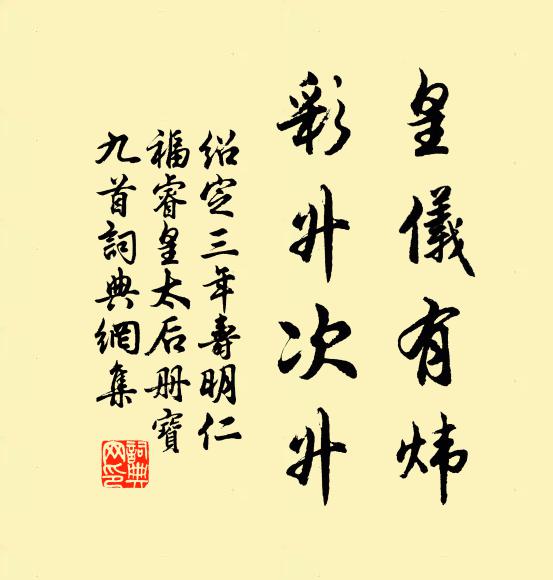 皇儀有煒
彩升次升
紹定三年壽明仁
福睿皇太后册寶
九首詞典網集
詞典网印